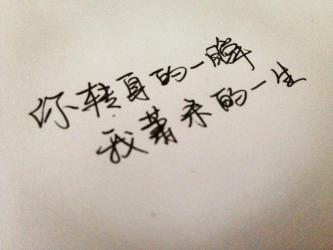 你转身的一瞬
我萧索的一生